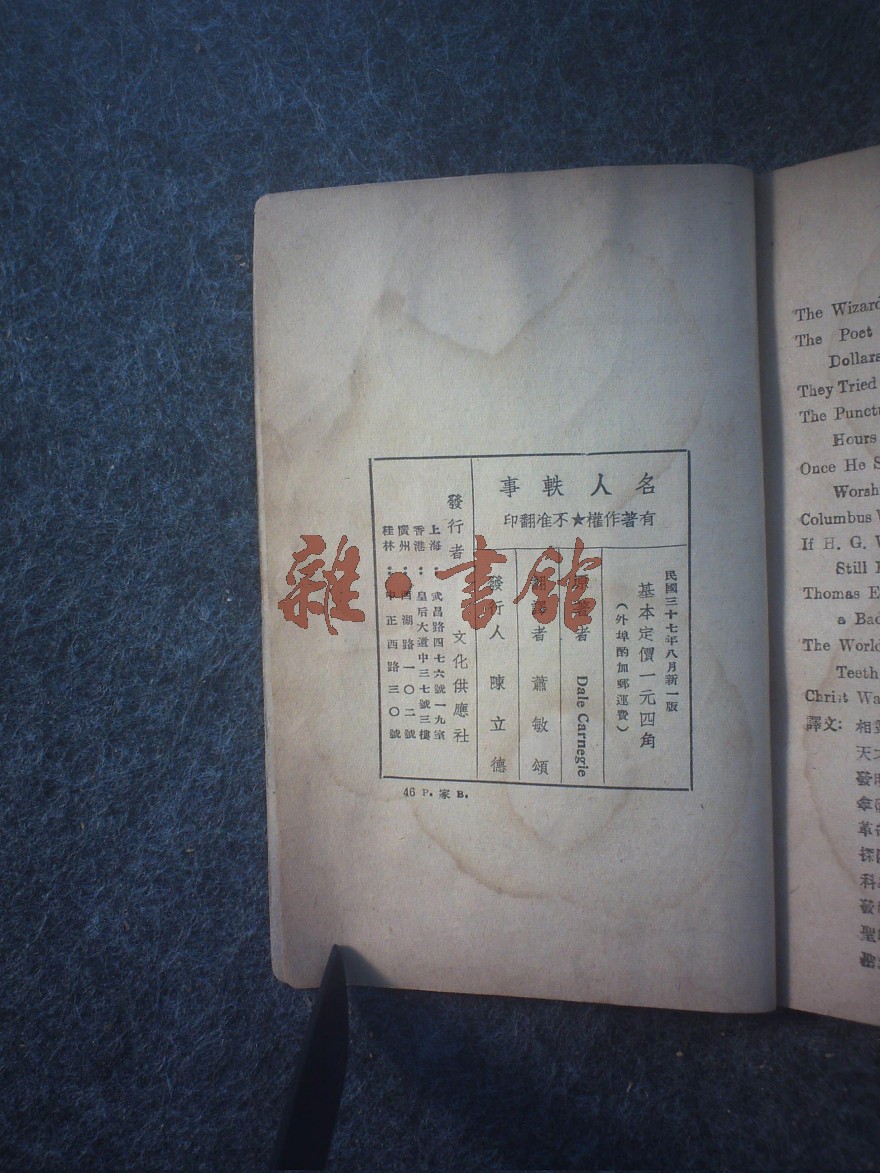 名人軼事
有著作權★不准翻印
民國三十七年八月新一版
基本定價一元四角
(外埠酌加郵運費)
著者 Dale Carnegie
翻譯者 蕭敏頌
發行人 陳立德
發行者 文化供應社
上海：武昌路四七六號一九室
香港：皇后大道中三七號三樓
廣州：西湖路一〇二號
桂林：中正西路三〇號
46 P. 家 B.
雜·書館
The Wizard
The Poet
Dollars
They Tried
The Punctu
Hours
Once He S
Worsh
Columbus W
If H. G. W
Still
Thomas E
a Bad
The World
Teeth
Christ Wa
譯文:
天才
發明
革命
探險
科
聖